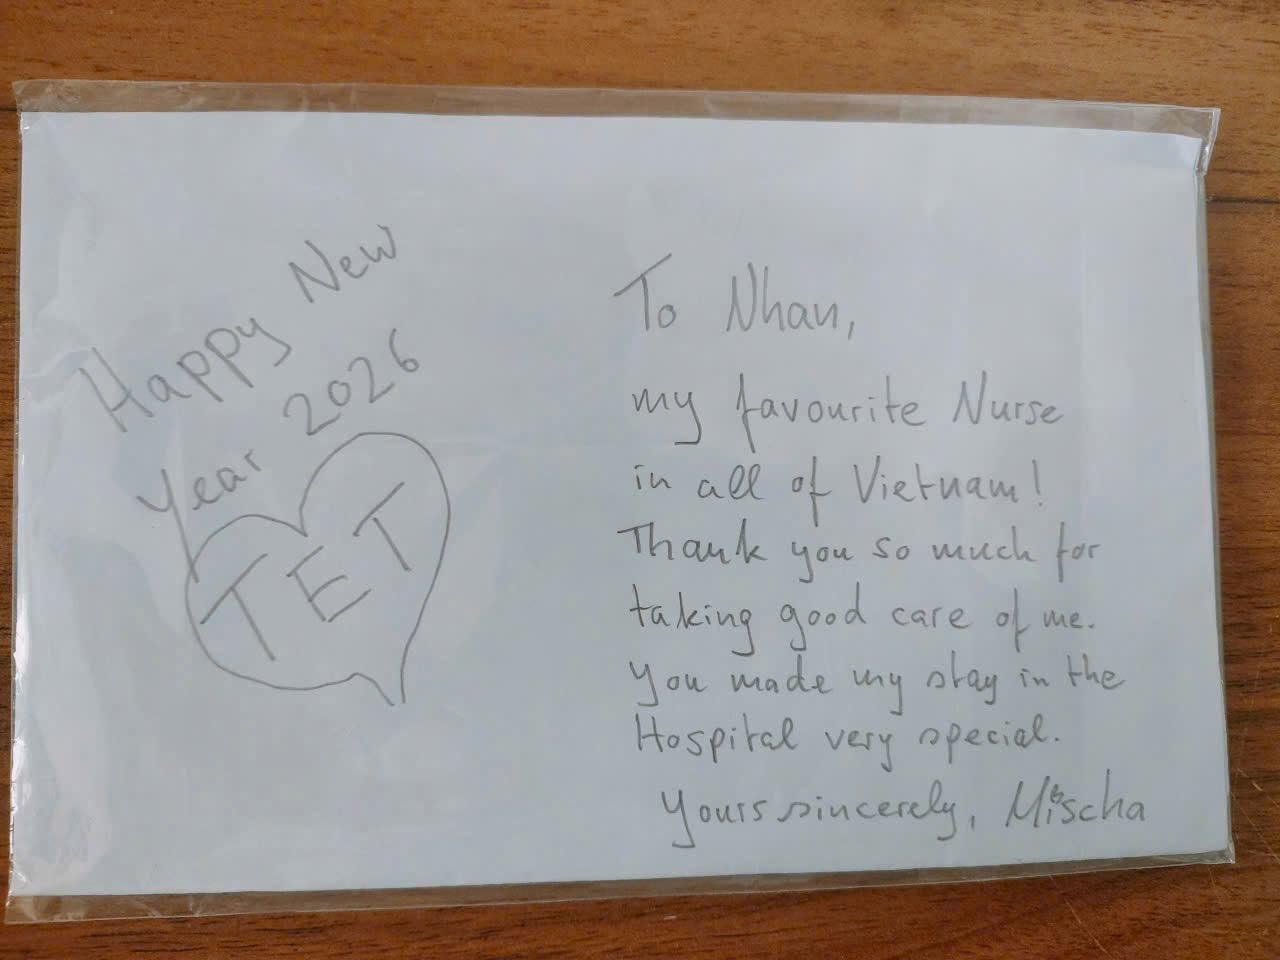 Happy New
Year 2026
TET
To Nhan,
my favourite Nurse
in all of Vietnam!
Thank you so much for
taking good care of me.
You made my stay in the
Hospital very special.
Yours sincerely, Mischa